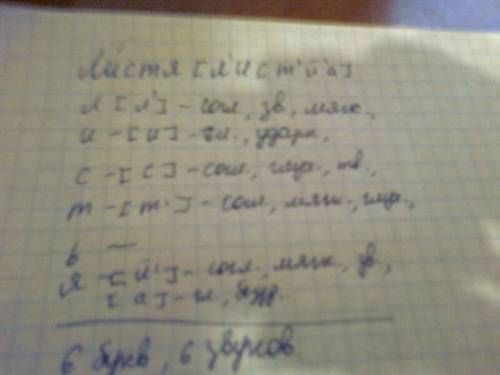 Листя [л'ист'й'а]
л [л'] - согл, зв, мягк.,
и - [и] - гл., ударн.,
с - [с] - согл., глух., тв.,
т - [т'] - согл., мягк., глух.,
ь —
я - [й'] - согл., мягк., зв.,
[а] - гл., безуд.
6 букв, 6 звуков